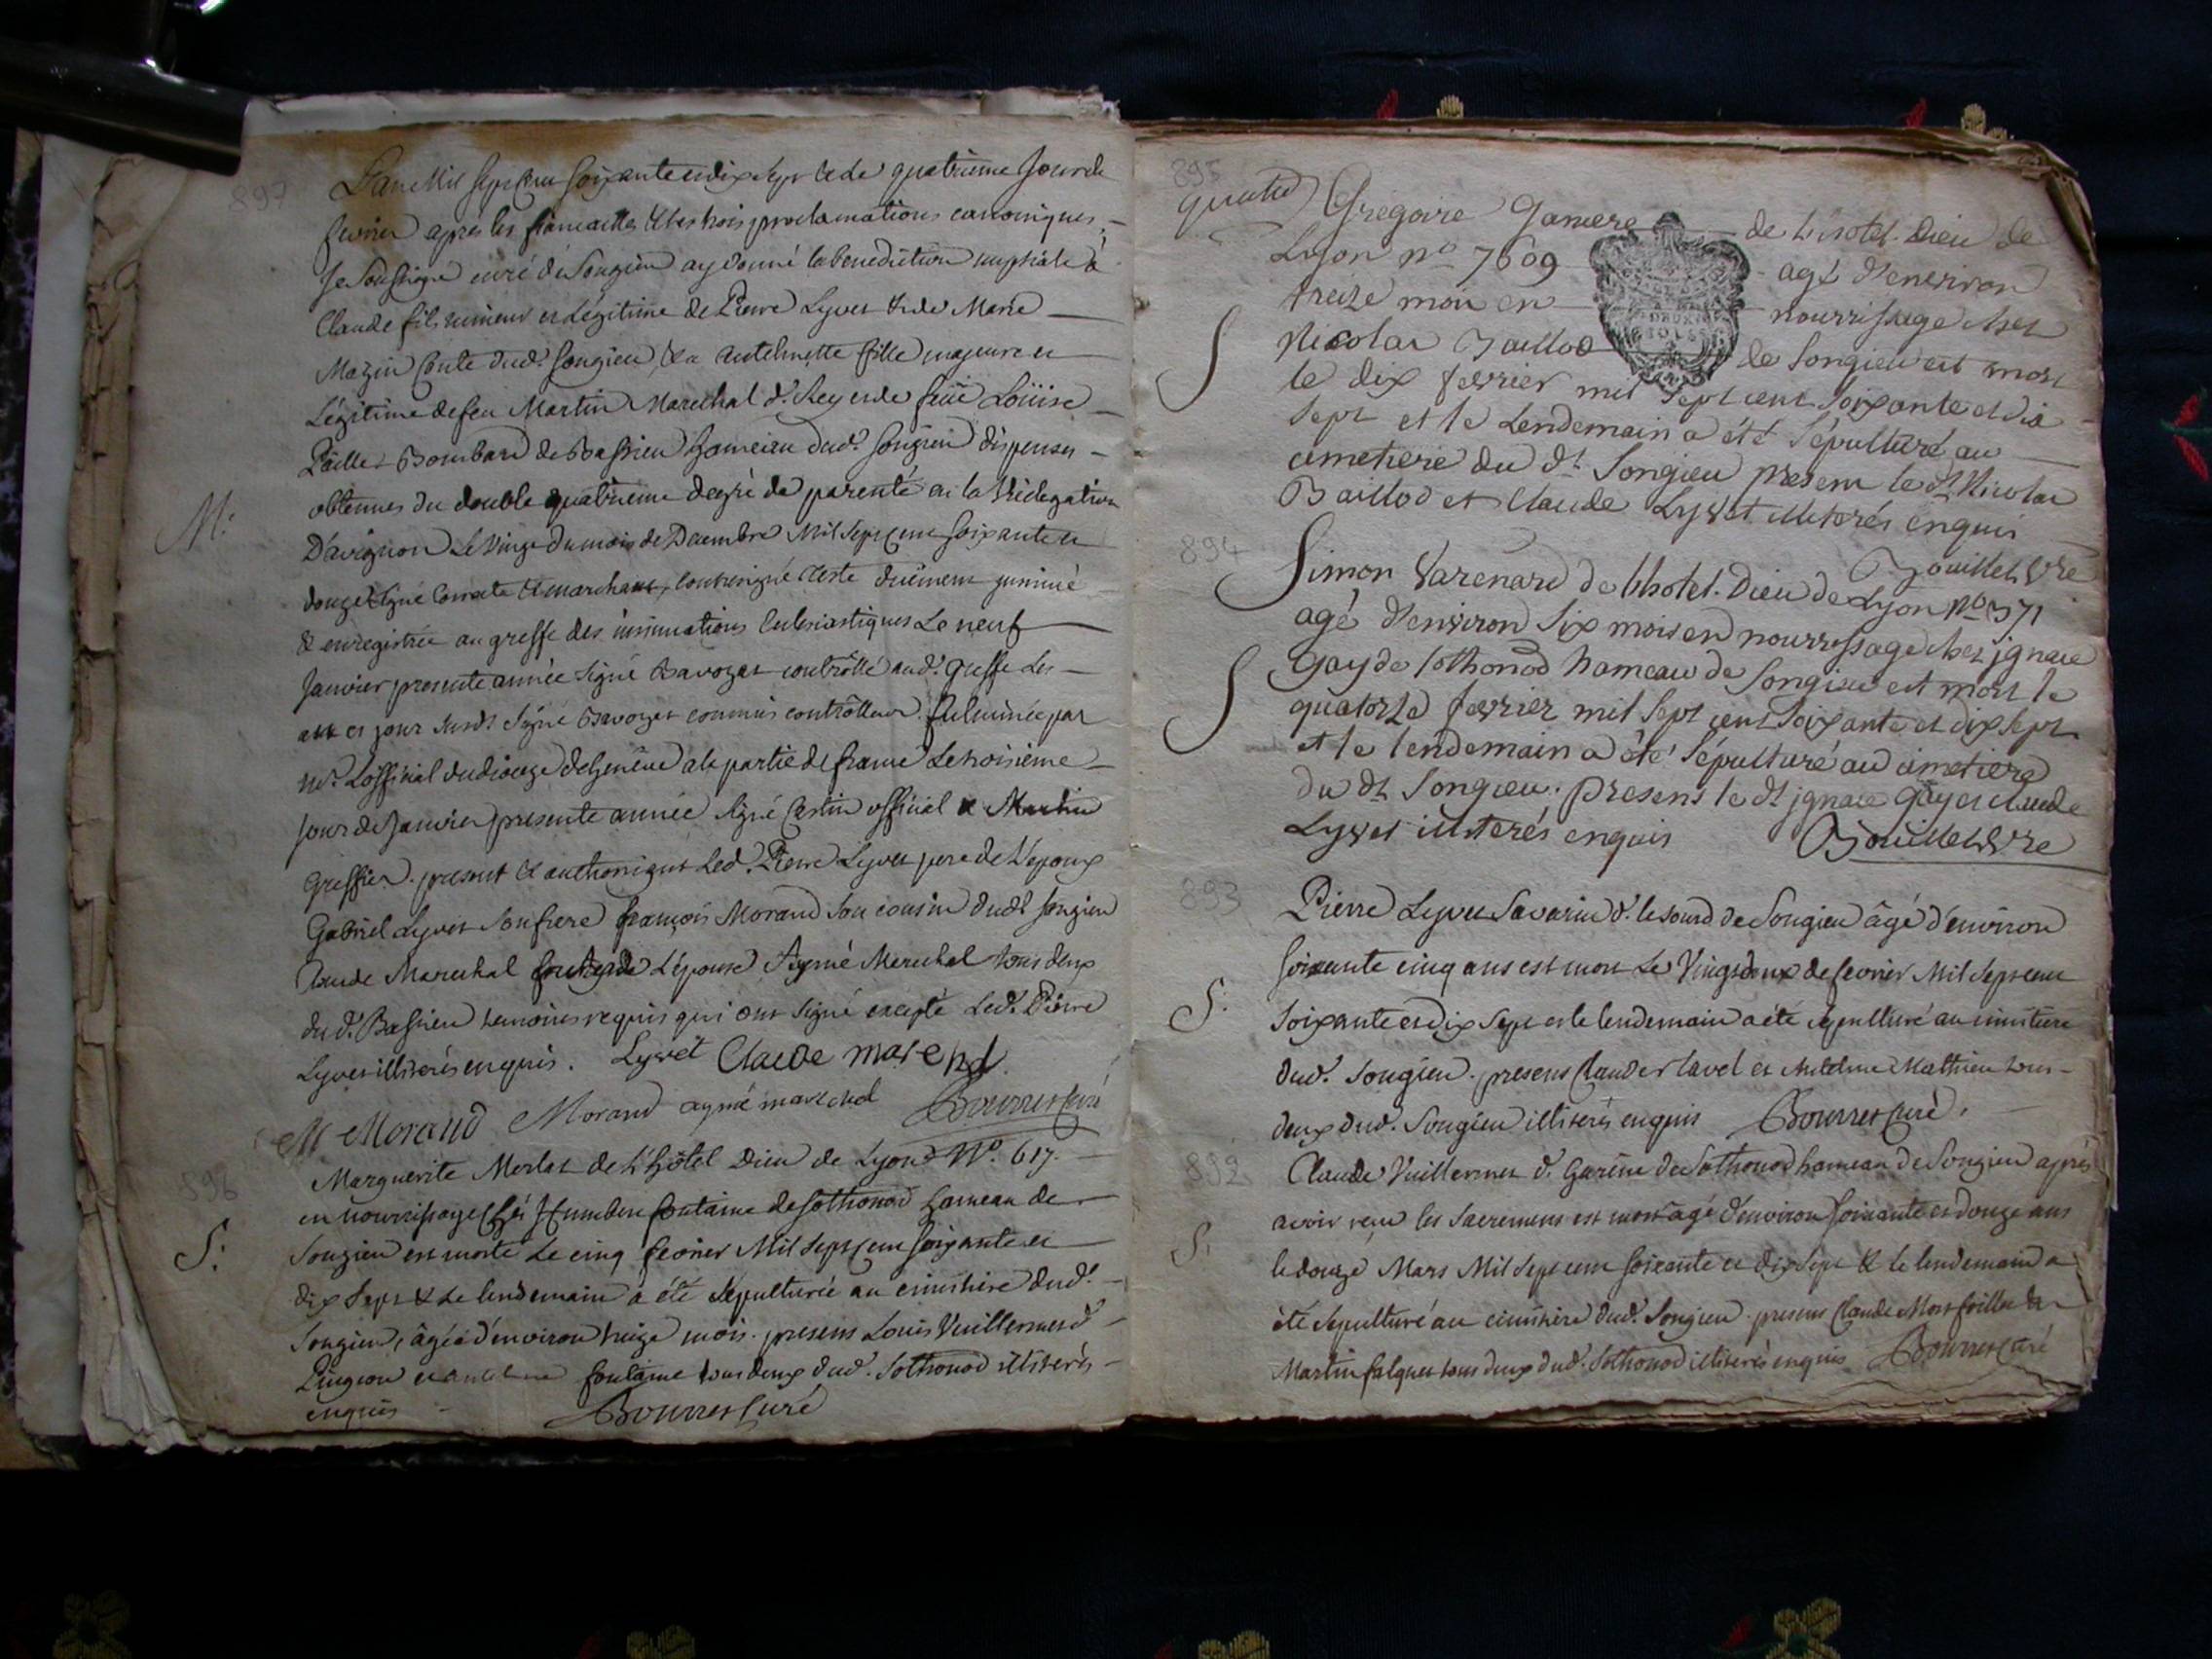 897
L'an Mil sept Cent soixante et dix sept et le quatrieme jour de
fevrier apres les fiancailles et les trois proclamations canoniques,
Je Soussigné curé de Songieu ay donné la benediction nuptiale à
Claude fils mineur et Légitime de Pierre Lyvet et de Marie
Mazin Conte dud. Songieu, et a Anthelmette fille majeure et
Légitime de feu Martin Marechal d. Rey et de feüe Loüise
Paillet Bombard de Bassieu hameau dud. Songieu dispenses
obtenues du double quatrieme degré de parenté en la Vicelegation
D'avignon Le Vingt du mois de Decembre Mil Sept Cent soixante et
douze signé Comte et marchand, contresigné Teste duëment
& enregistrée au greffe des insinuations Eclesiastiques Le neuf
Janvier presente année signé Savoyet controllé aud. greffe Les
an et jour susdt signé Savoyet commis controlleur fulminée par
Mr. L'official du dioceze de Geneve a la partie de france Le troisieme
jour de Janvier presente année signé official & Martin
Greffier. present et authorisant Led. Pierre Lyvet pere de L'epoux
Gabriel Lyvet son frere françois Morand son cousin dudt Songieu
Claude Marechal frere de L'épouse Aymé Marechal tous deux
du d. Bassieu temoins requis qui ont signé excepté Led. Pierre
Lyvet illiterés enquis. Lyvet Claude marchal
M Morand Morand aymé marechal Bourret Curé
896
Marguerite Merlat de L'hôtel Dieu de Lyon N°. 617.
en nourrissage chés Humbert fontaine de Sothonod hameau de
Songieu est morte Le cinq fevrier Mil Sept Cent soixante et
dix Sept & Le lendemain a été Sépulturée au cimitiere dud.
Songieu, âgée d'environ treize mois. presens Louis Vuillermet d.
Pingeon et fontaine tous deux dud. Sothonod illiterés
enquis Bourret Curé
M.
S.
895
Gregoire Ganiere de L'hotel Dieu de
Lyon no 7609 agé d'environ
treize moi en nourrissage chez
Nicolas Baillod de Songieu est mort
le dix fevrier mil sept cent soixante et dix
sept et le Lendemain a été sépulturé au
cimetiere du dt Songieu presens le dt Nicolas
Baillod et Claude Lyvet illiterés enquis
Bouillet Vre
894
Simon Varenard de lhotel. Dieu de Lyon no 371
agé d'environ six mois en nourrissage chez jgnace
Gay de Sothonod hameau de Songieu est mort le
quatorze fevrier mil sept cent soixante et dix sept
et le lendemain a été sépulturé au cimetiere
du dt Songieu. presens le dt jgnace Gay et claude
Lyvet illiterés enquis Bouillet Vre
893
Pierre Lyvet Savarin d. le sourd de Songieu âgé d'environ
soixante cinq ans est mort Le Vingt deux de fevrier Mil Sept cent
soixante et Dix Sept et le lendemain a été sepulturé au cimitiere
dud. Songieu. presens Claude Clavel et Anthelme Mathieu tous
deux dud. Songieu illiterés enquis Bourret Curé.
892
Claude Vuillermet d. Garine de Sothonod hameau de Songieu après
avoir reçu les Sacremens est mort agé d'environ soixante et douze ans
le douze Mars Mil Sept cent soixante et dix Sept & le lendemain a
été sepulturé au cimitiere dud. Songieu. presens Claude Montfoillet et
Martin falquet tous deux dud. Sothonod illiterés enquis Bourret Curé
S
S
S.
S.